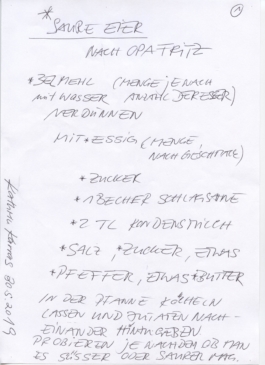 * SAURE EIER
NACH OPA FRITZ
MEHL (MENGE JE NACH
MIT WASSER ANZAHL DER ESSER)
VERDÜNNEN
MIT ESSIG (MENGE
NACH GESCHMACK)
* ZUCKER
* 1 BECHER SCHLAGSAHNE
* 2 TL KONDENSMILCH
* SALZ, * ZUCKER, ETWAS
* PFEFFER, ETWAS BUTTER
IN DER PFANNE KÖCHELN
LASSEN UND ZUTATEN NACH-
EINANDER HINZUGEBEN
PROBIEREN JE NACHDEM OB MAN
ES SÜSSER ODER SAURER MAG.